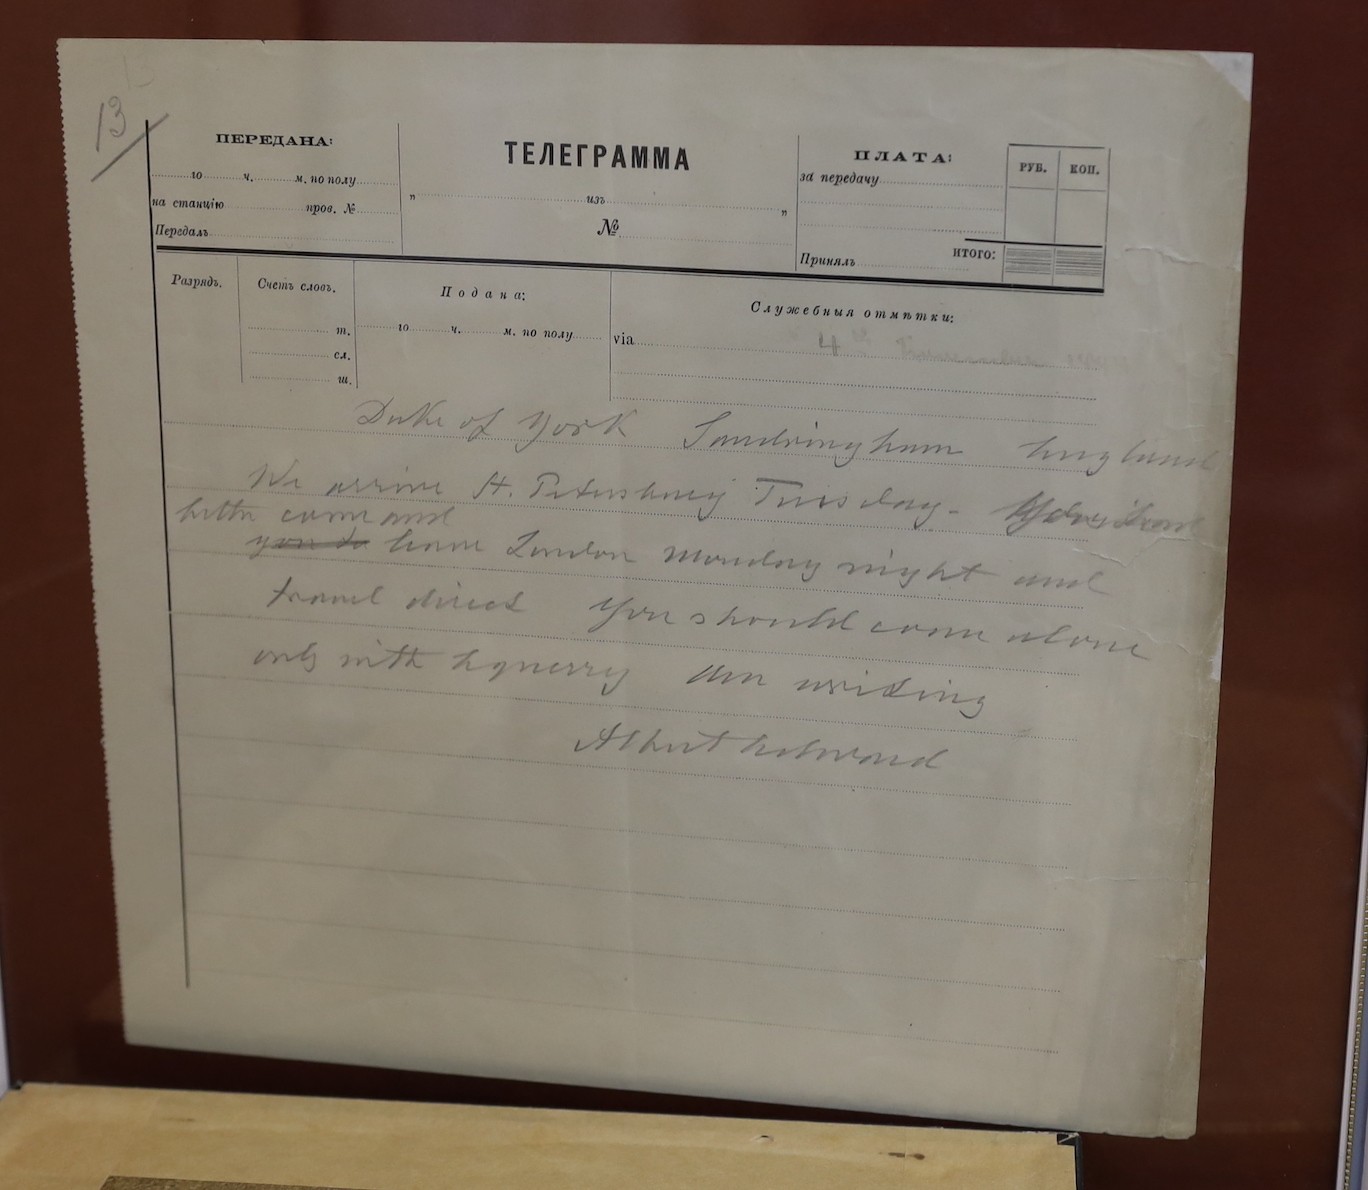 13
ПЕРЕДАНА:
ТЕЛЕГРАММА
ПЛАТА:
РУБ. КОП.
го ч. м. по полу
на станцію пров. №
Передалъ
„ изъ „
№
за передачу
ИТОГО:
Принялъ
Разрядъ.
Счетъ словъ.
т.
сл.
ш.
Подана:
го ч. м. по полу
Служебныя отмѣтки:
via 4
Duke of York Sandringham England
We arrive St. Petersburg Tuesday.
better come and
you to leave London Monday night and
travel direct You should come alone
only with Equerry Am writing
Albert Edward